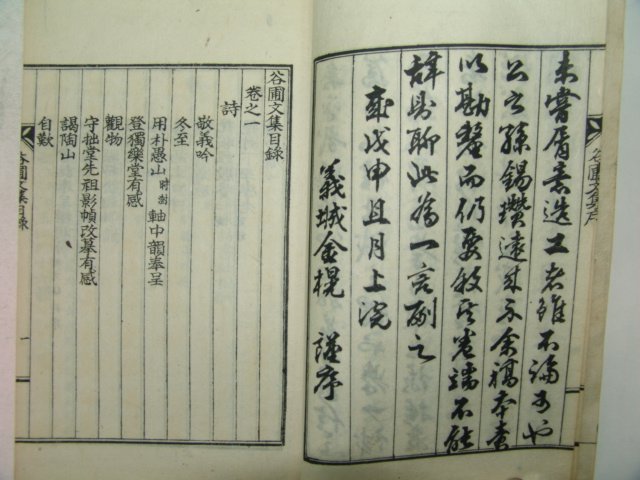 谷圃文集序
未嘗屑意造工者雖不論可也
公之孫錫瓚遠來示余禍本責
以勘釐而仍要敍其卷端不能
辭則聊此爲一言副之
歲戊申且月上浣
義城金榥 謹序
谷圃文集目錄
卷之一
詩
敬義吟
冬至
用朴愚山時剏軸中韻奉呈
登獨樂堂有感
觀物
守拙堂先祖影幀改摹有感
謁陶山
自歎
谷圃文集目錄
一